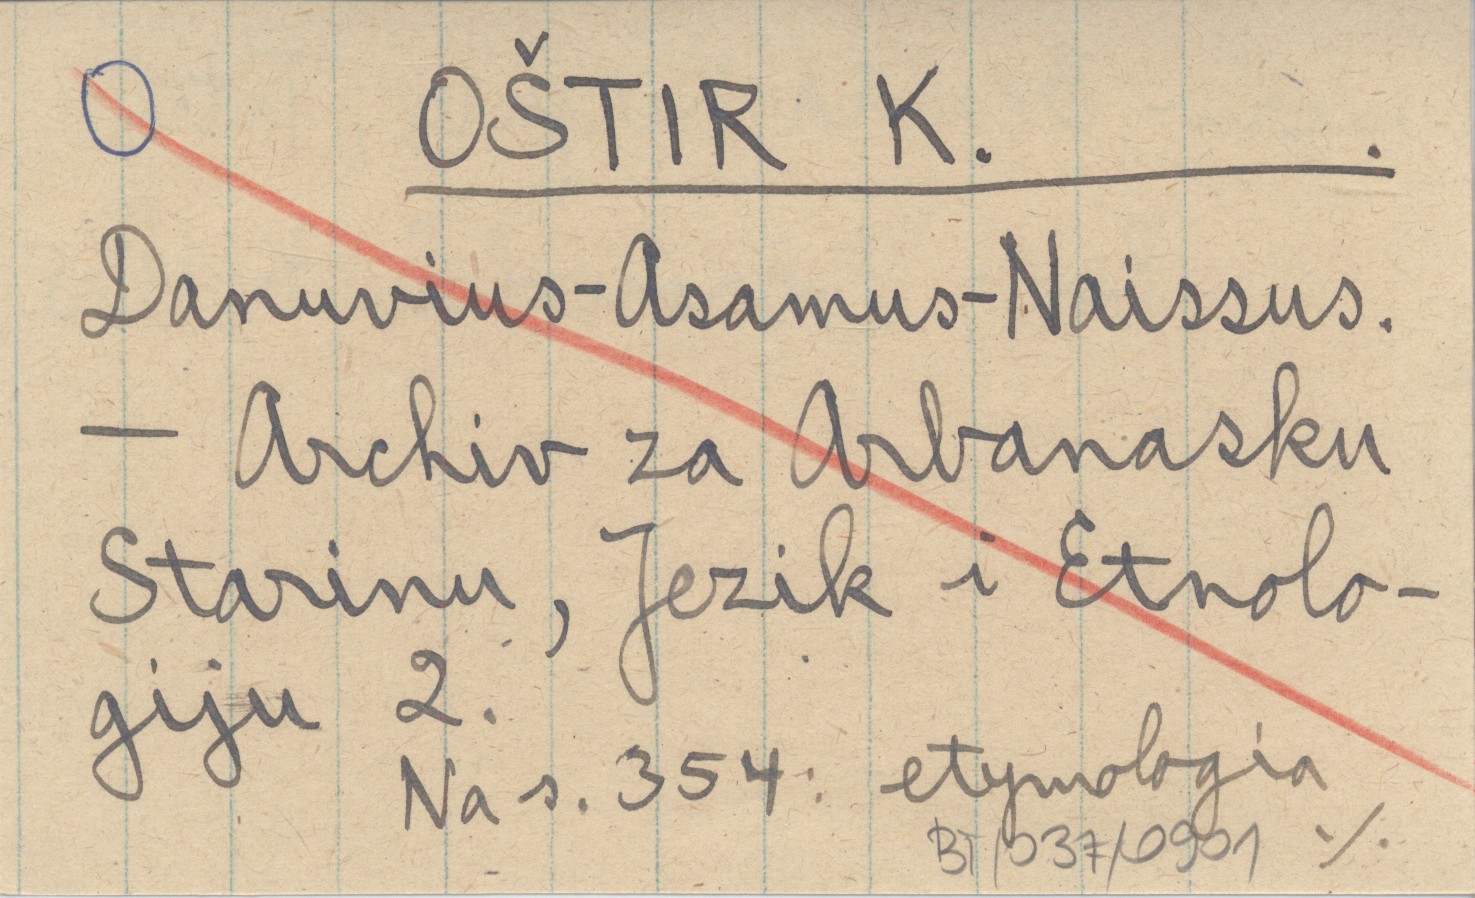 O OŠTIR K.
Danuvius-Asamus-Naissus.
— Archiv za Arbanasku
Starinu, Jezik i Etnolo-
giju 2.
Na s. 354: etymologia
BT/037/0901 ./.